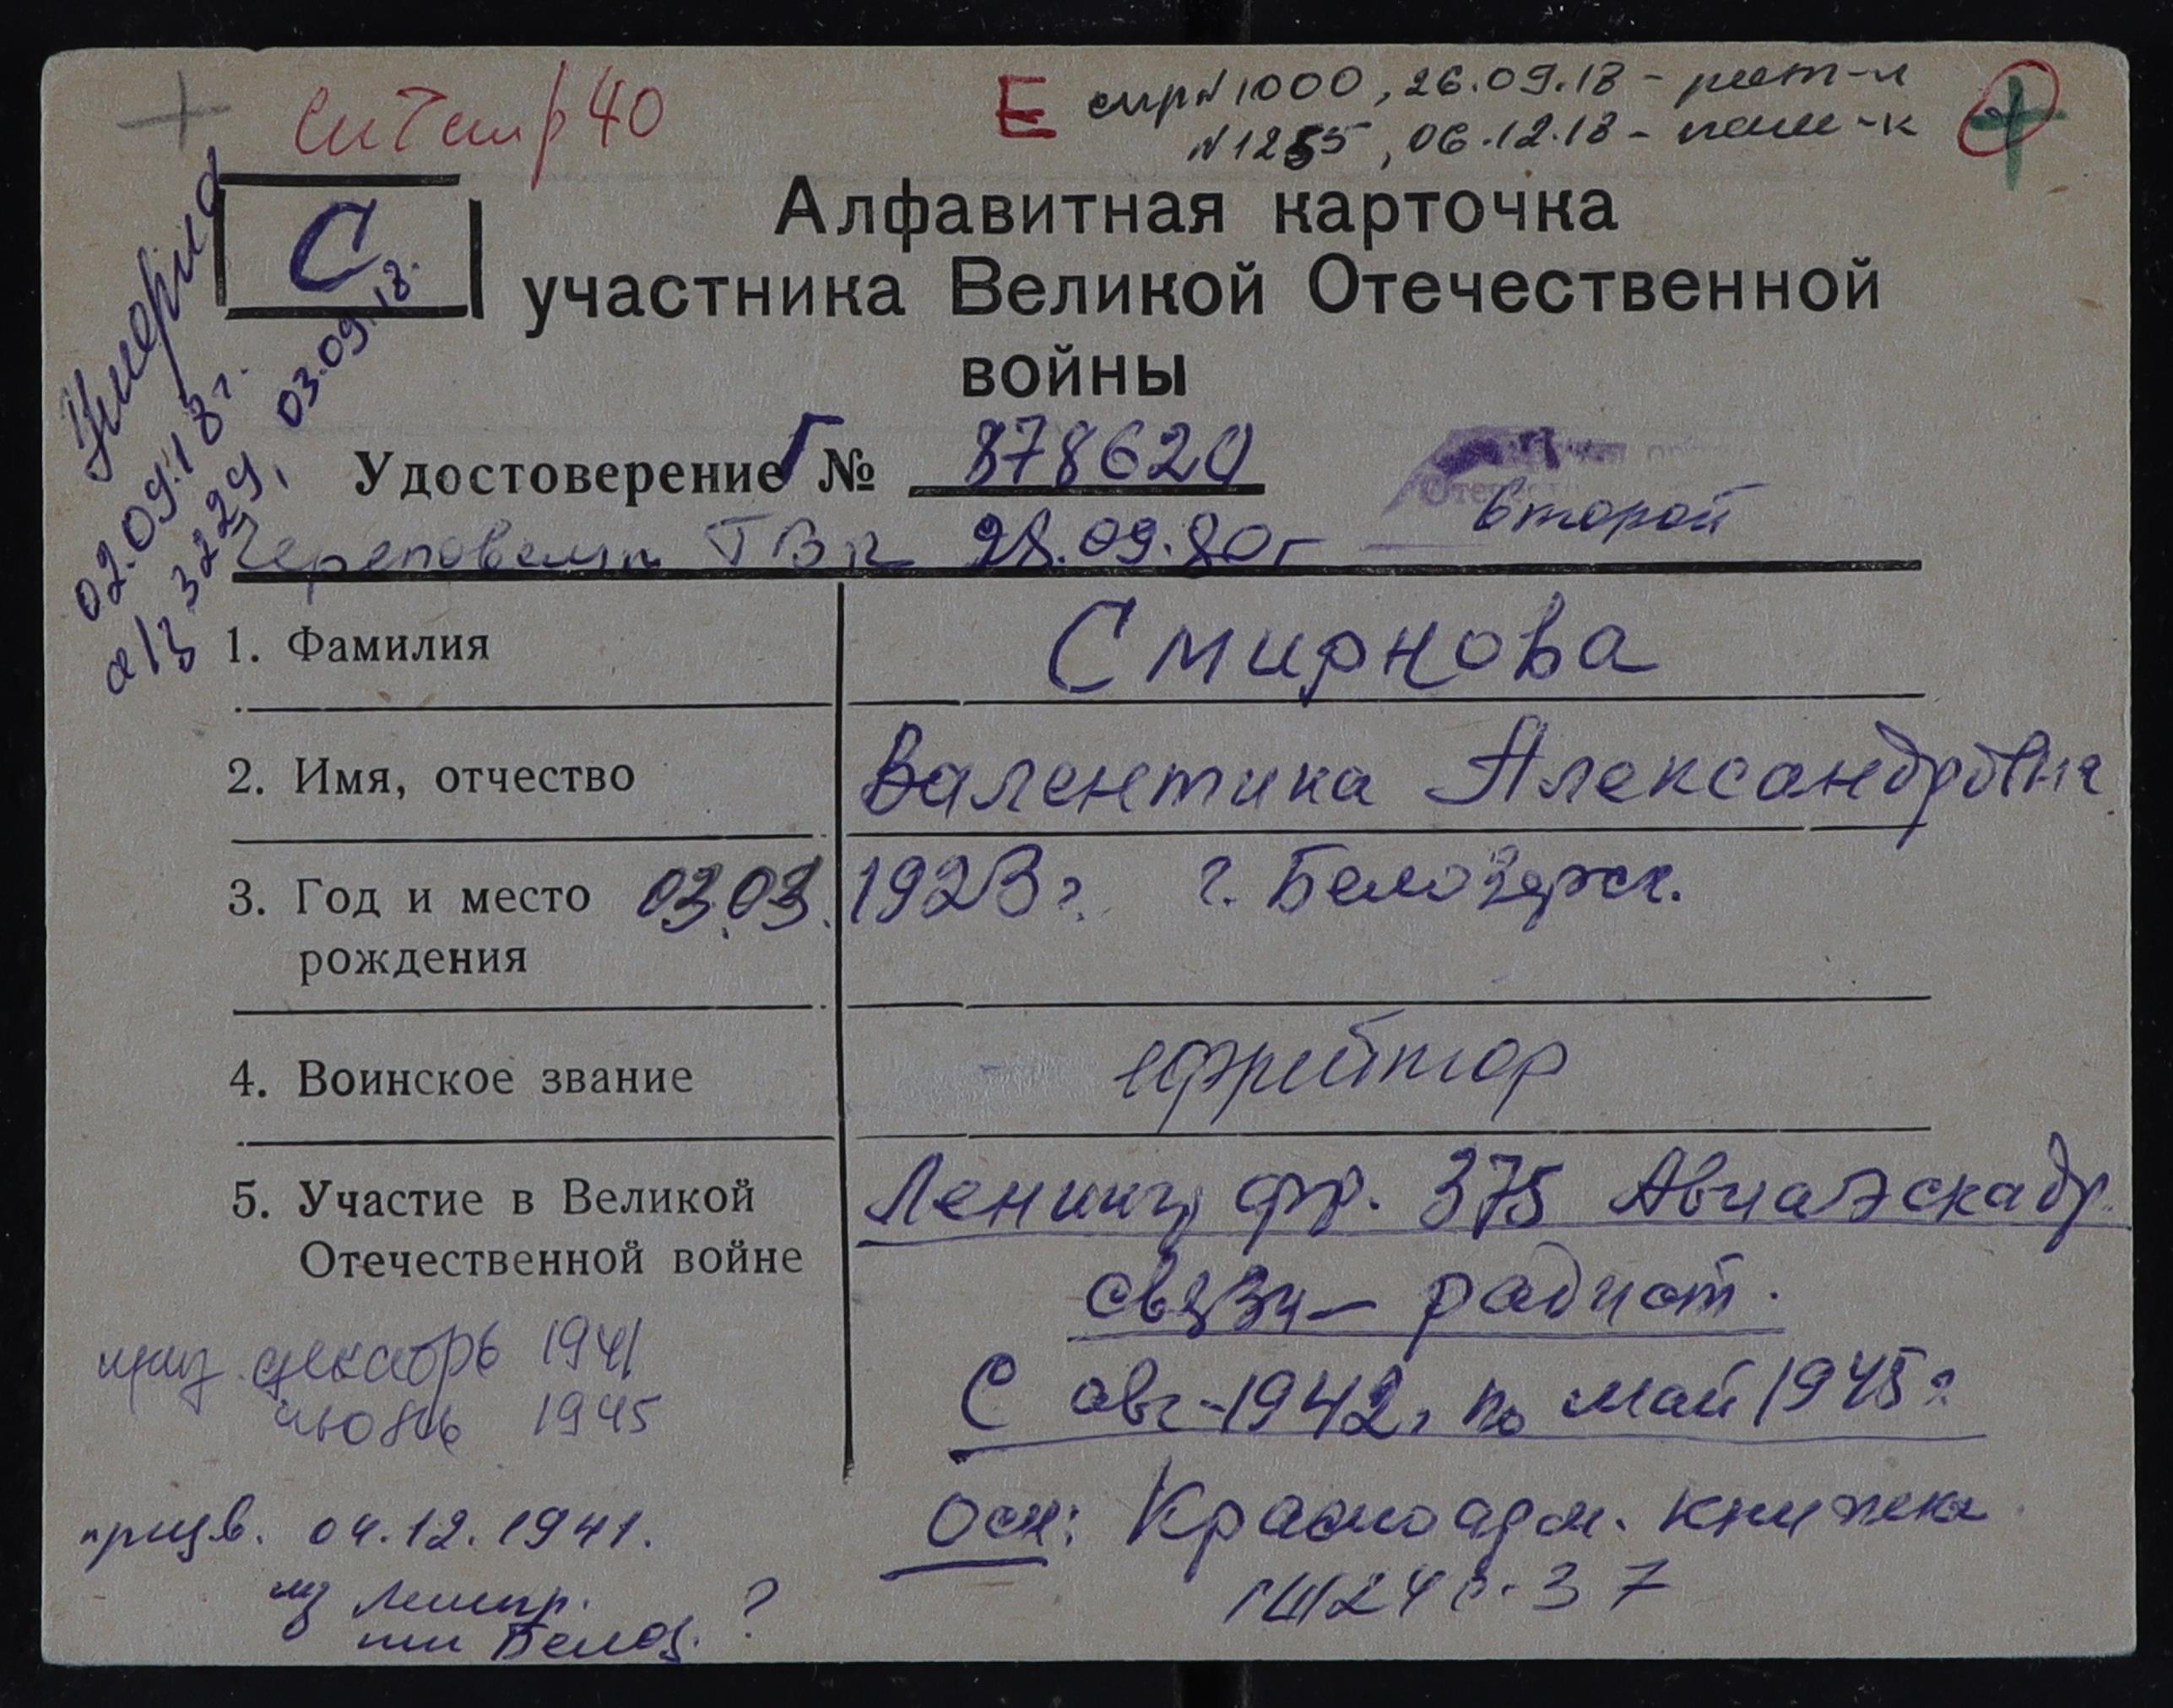 40
Е №1000, 26.09.18 -
, 06.12.18 -
С
Умерла
02.09.18г.
а/з 3229, 03.09.18.
Алфавитная карточка
участника Великой Отечественной
войны
Удостоверение Г № 878620
второй
Череповецк ГВК 28.09.80г
1. Фамилия Смирнова
2. Имя, отчество Валентина Александровна
3. Год и место рождения 03.03.1923г. г. Белозерск.
4. Воинское звание ефрейтор
5. Участие в Великой Отечественной войне Ленингр. фр. 375 Авиаэскадр.
связи - радист.
С авг-1942г по май 1945г
приз декабрь 1941
июнь 1945
Осн: Красноарм. книжка
призв. 04.12.1941.
из Ленгр.
или Белоз. ?